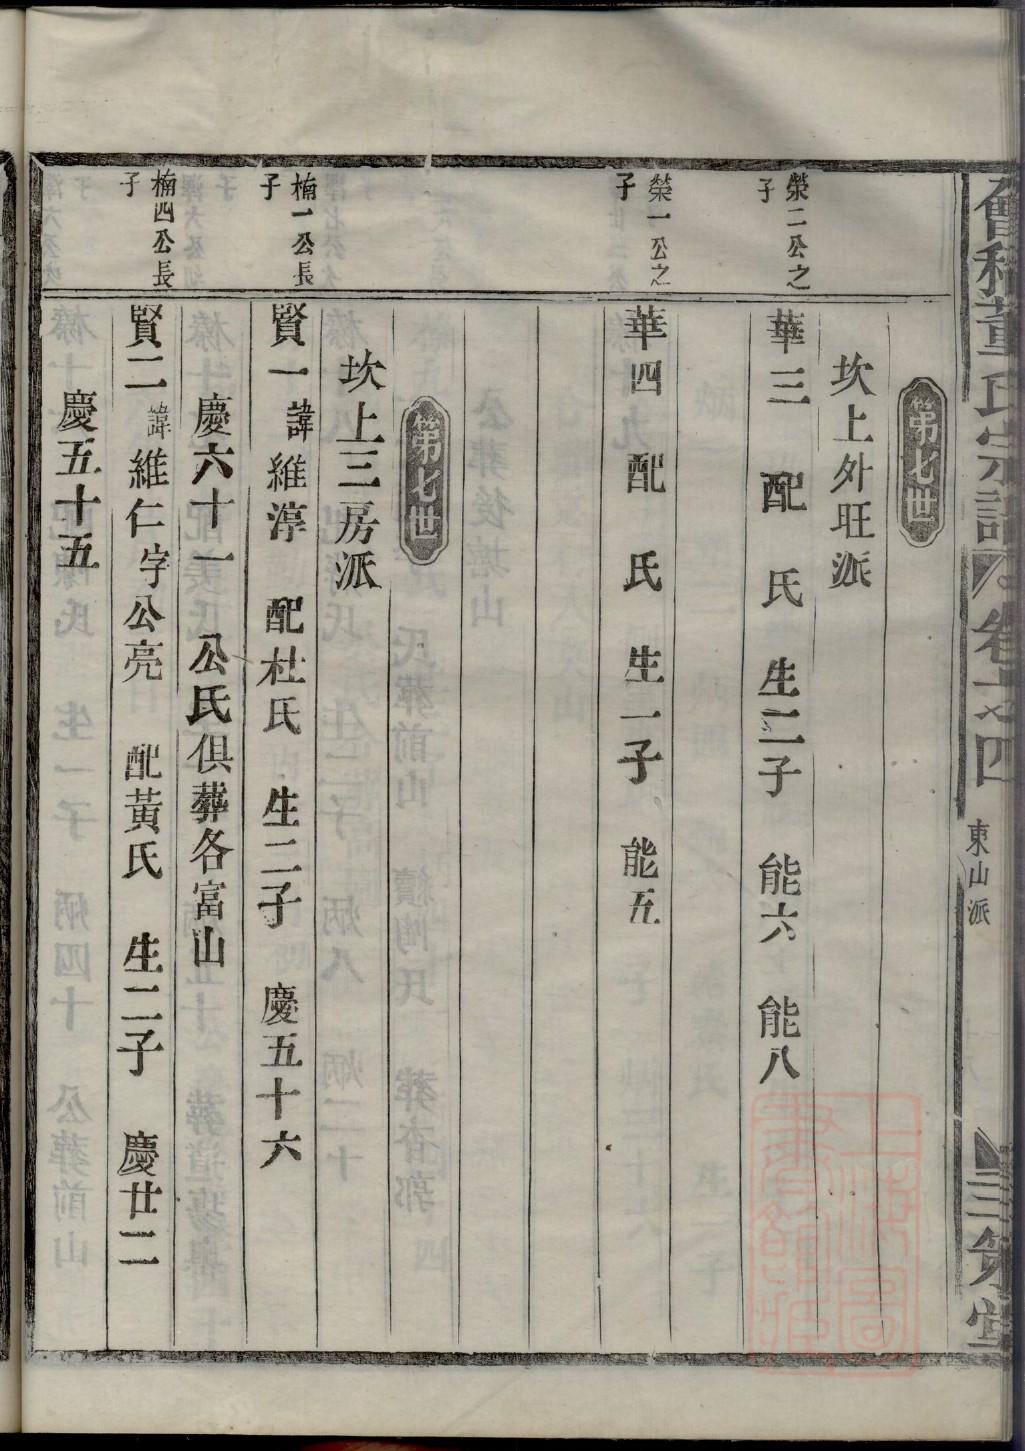 會稽董氏宗譜 卷十之四 東山派 三策堂
第七世
坎上外旺派
榮二公之子
華三 配 氏 生二子 能六 能八
榮一公之子
華四 配 氏 生一子 能五
第七世
坎上三房派
楠一公長子
賢一 諱維淳 配杜氏 生二子 慶五十六
慶六十一 公氏俱葬各富山
楠四公長子
賢二 諱維仁字公亮 配黃氏 生二子 慶廿二
慶五十五